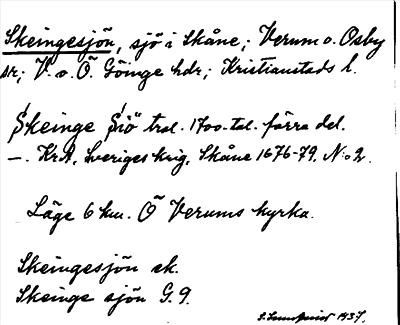 Skeingesjön, sjö i Skåne; Verum o. Osby
snr; V. o. Ö Göinge hdr; Kristianstads l.
Skeinge Siö trol. 1700-tal. förra del.
—. KrA, Sveriges krig, Skåne 1676-79, N:o 2.
Läge 6 km. Ö Verums kyrka.
Skeingesjön ek.
Skeinge sjön G. 9.
1937.